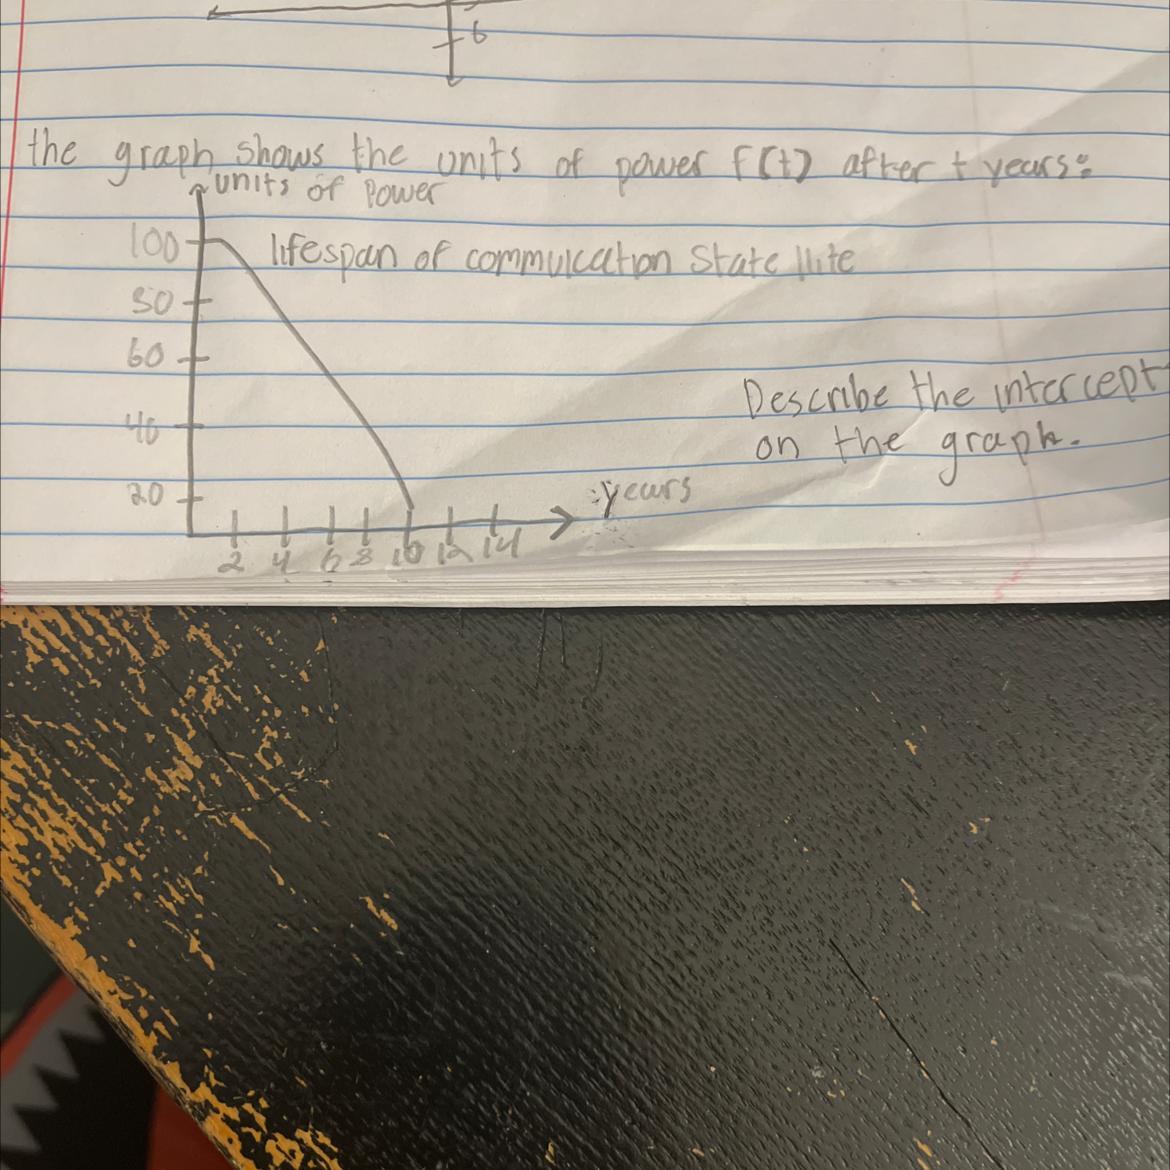 6
the graph shows the units of power f(t) after t years:
units of power
100 lifespan of commuication State llite
80
60
Describe the intercept
40
on the graph.
20
:years
2 4 6 8 10 12 14